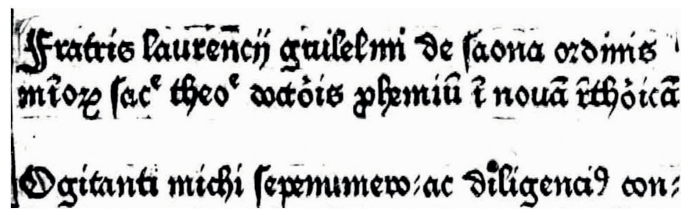 Fratris laurencij guilelmi de saona ordinis
mīoꝝ sacᵉ theoᵉ doctōis ꝓhemiū ī nouā rᷓthōicā
Ogitanti michi sepenumero: ac diligenciꝰ con⸗